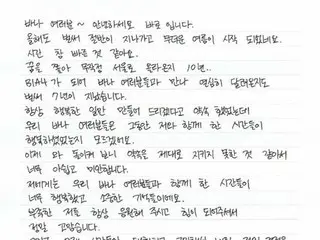 바나 여러분~ 안녕하세요 바로 입니다.
올해도 벌써 절반이 지나가고 무더운 여름이 시작 되었네요.
시간 참 빠른 것 같아요.
꿈을 쫓아 무작정 서울로 올라온지 10년..
B1A4가 되어 바나 여러분들과 만나 열심히 달려온지도
벌써 7년이 지났습니다.
항상 행복한 일만 만들어 드리겠다고 약속 했었는데
우리 바나 여러분들은 그동안 저와 함께 한 시간들이
행복하셨었는지 모르겠어요.
이제 와 돌이켜 보니 약속을 제대로 지키지 못한 것 같아서
너무 아쉽고 미안합니다.
저에게는 우리 바나 여러분들과 함께 한 시간들이
너무 행복했고 소중한 기억들이에요.
부족한 저를 항상 응원해 주시고 힘이 되어주셔서
정말 고맙습니다.